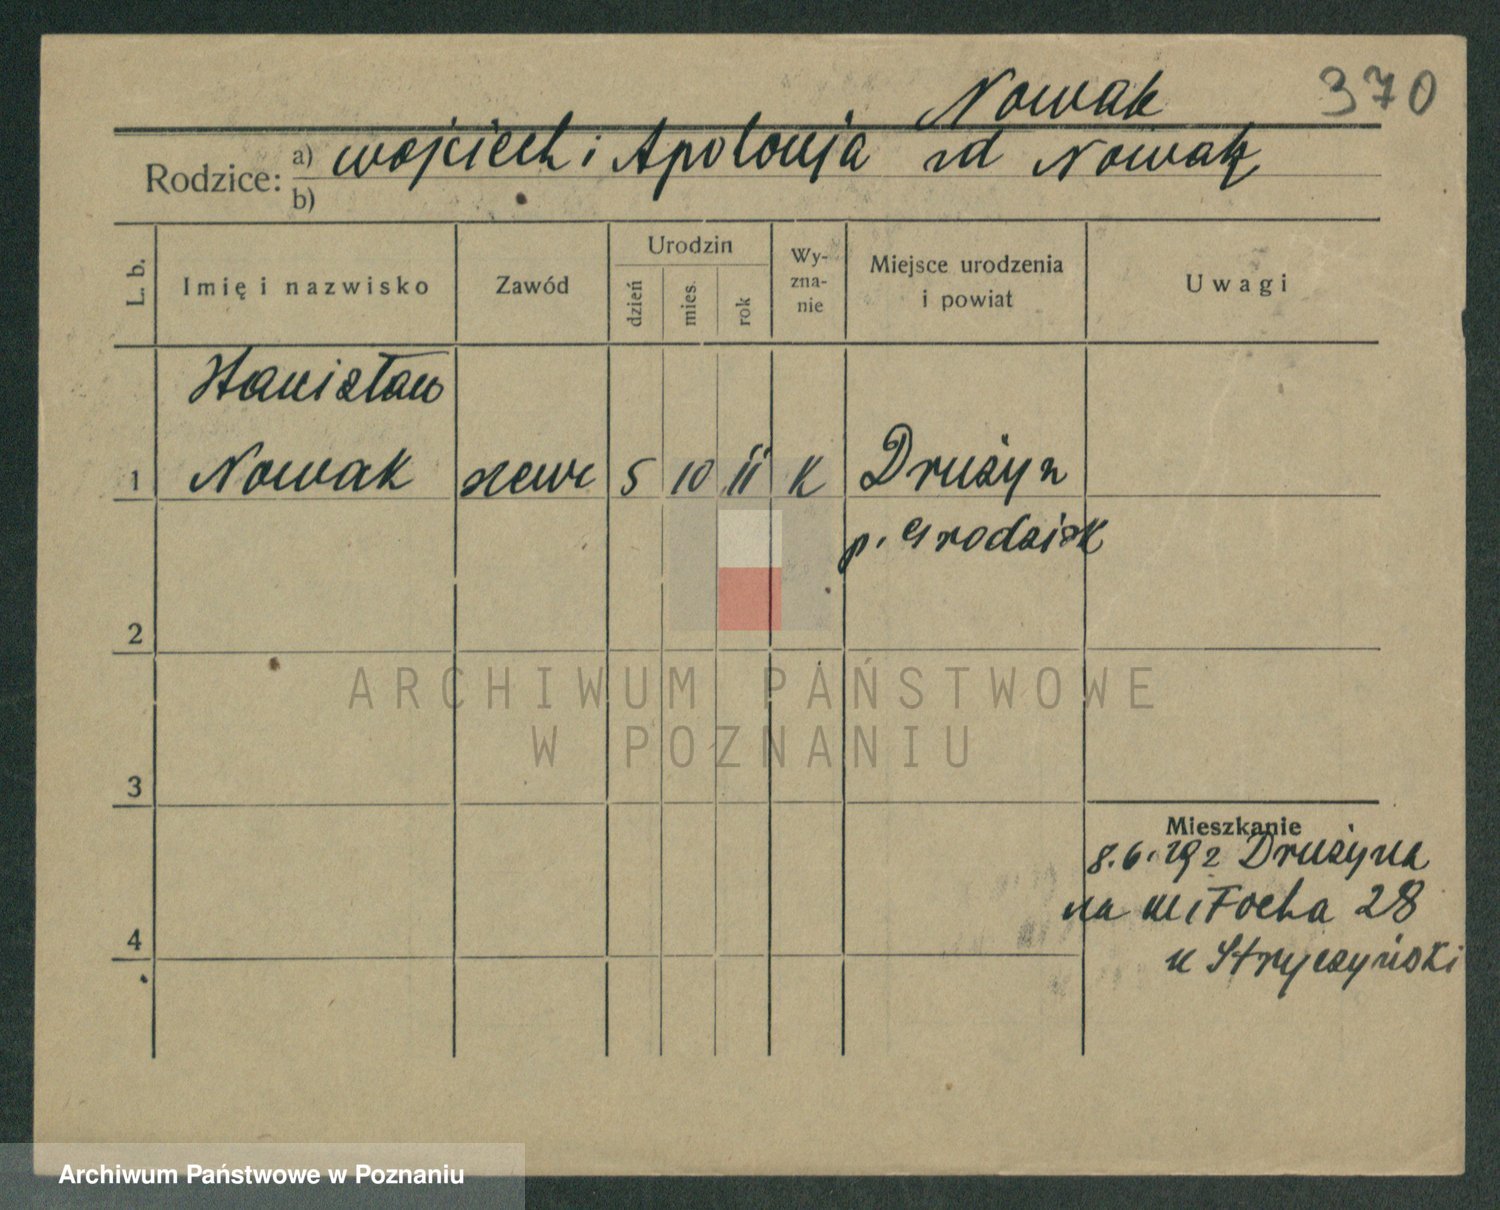 370
Nowak
Rodzice: a) Wojciech i Apolonja zd Nowak
b)
L. b.
Imię i nazwisko
Zawód
Urodzin
dzień
mies.
rok
Wy-
zna-
nie
Miejsce urodzenia
i powiat
Uwagi
Stanisław
1 Nowak szewc 5 10 11 K Drużyn
p. Grodzisk
2
3
4
Mieszkanie
8.6. 192 Drużyna
na ul Focha 28
u Stryczyński
ARCHIWUM PAŃSTWOWE
W POZNANIU
Archiwum Państwowe w Poznaniu